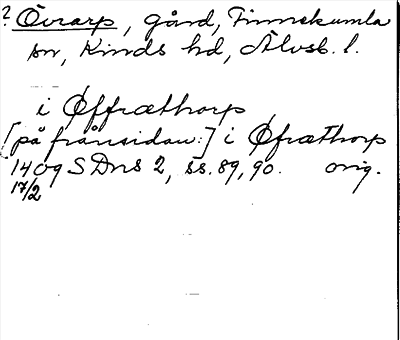 ? Övarp, gård, Finnekumla
sn, Kinds hd, Älvsb. l.
i Øffræthorp
[på frånsidan:] i Øfræthorp
1409 SDns 2, ss. 89, 90. orig.
17/2